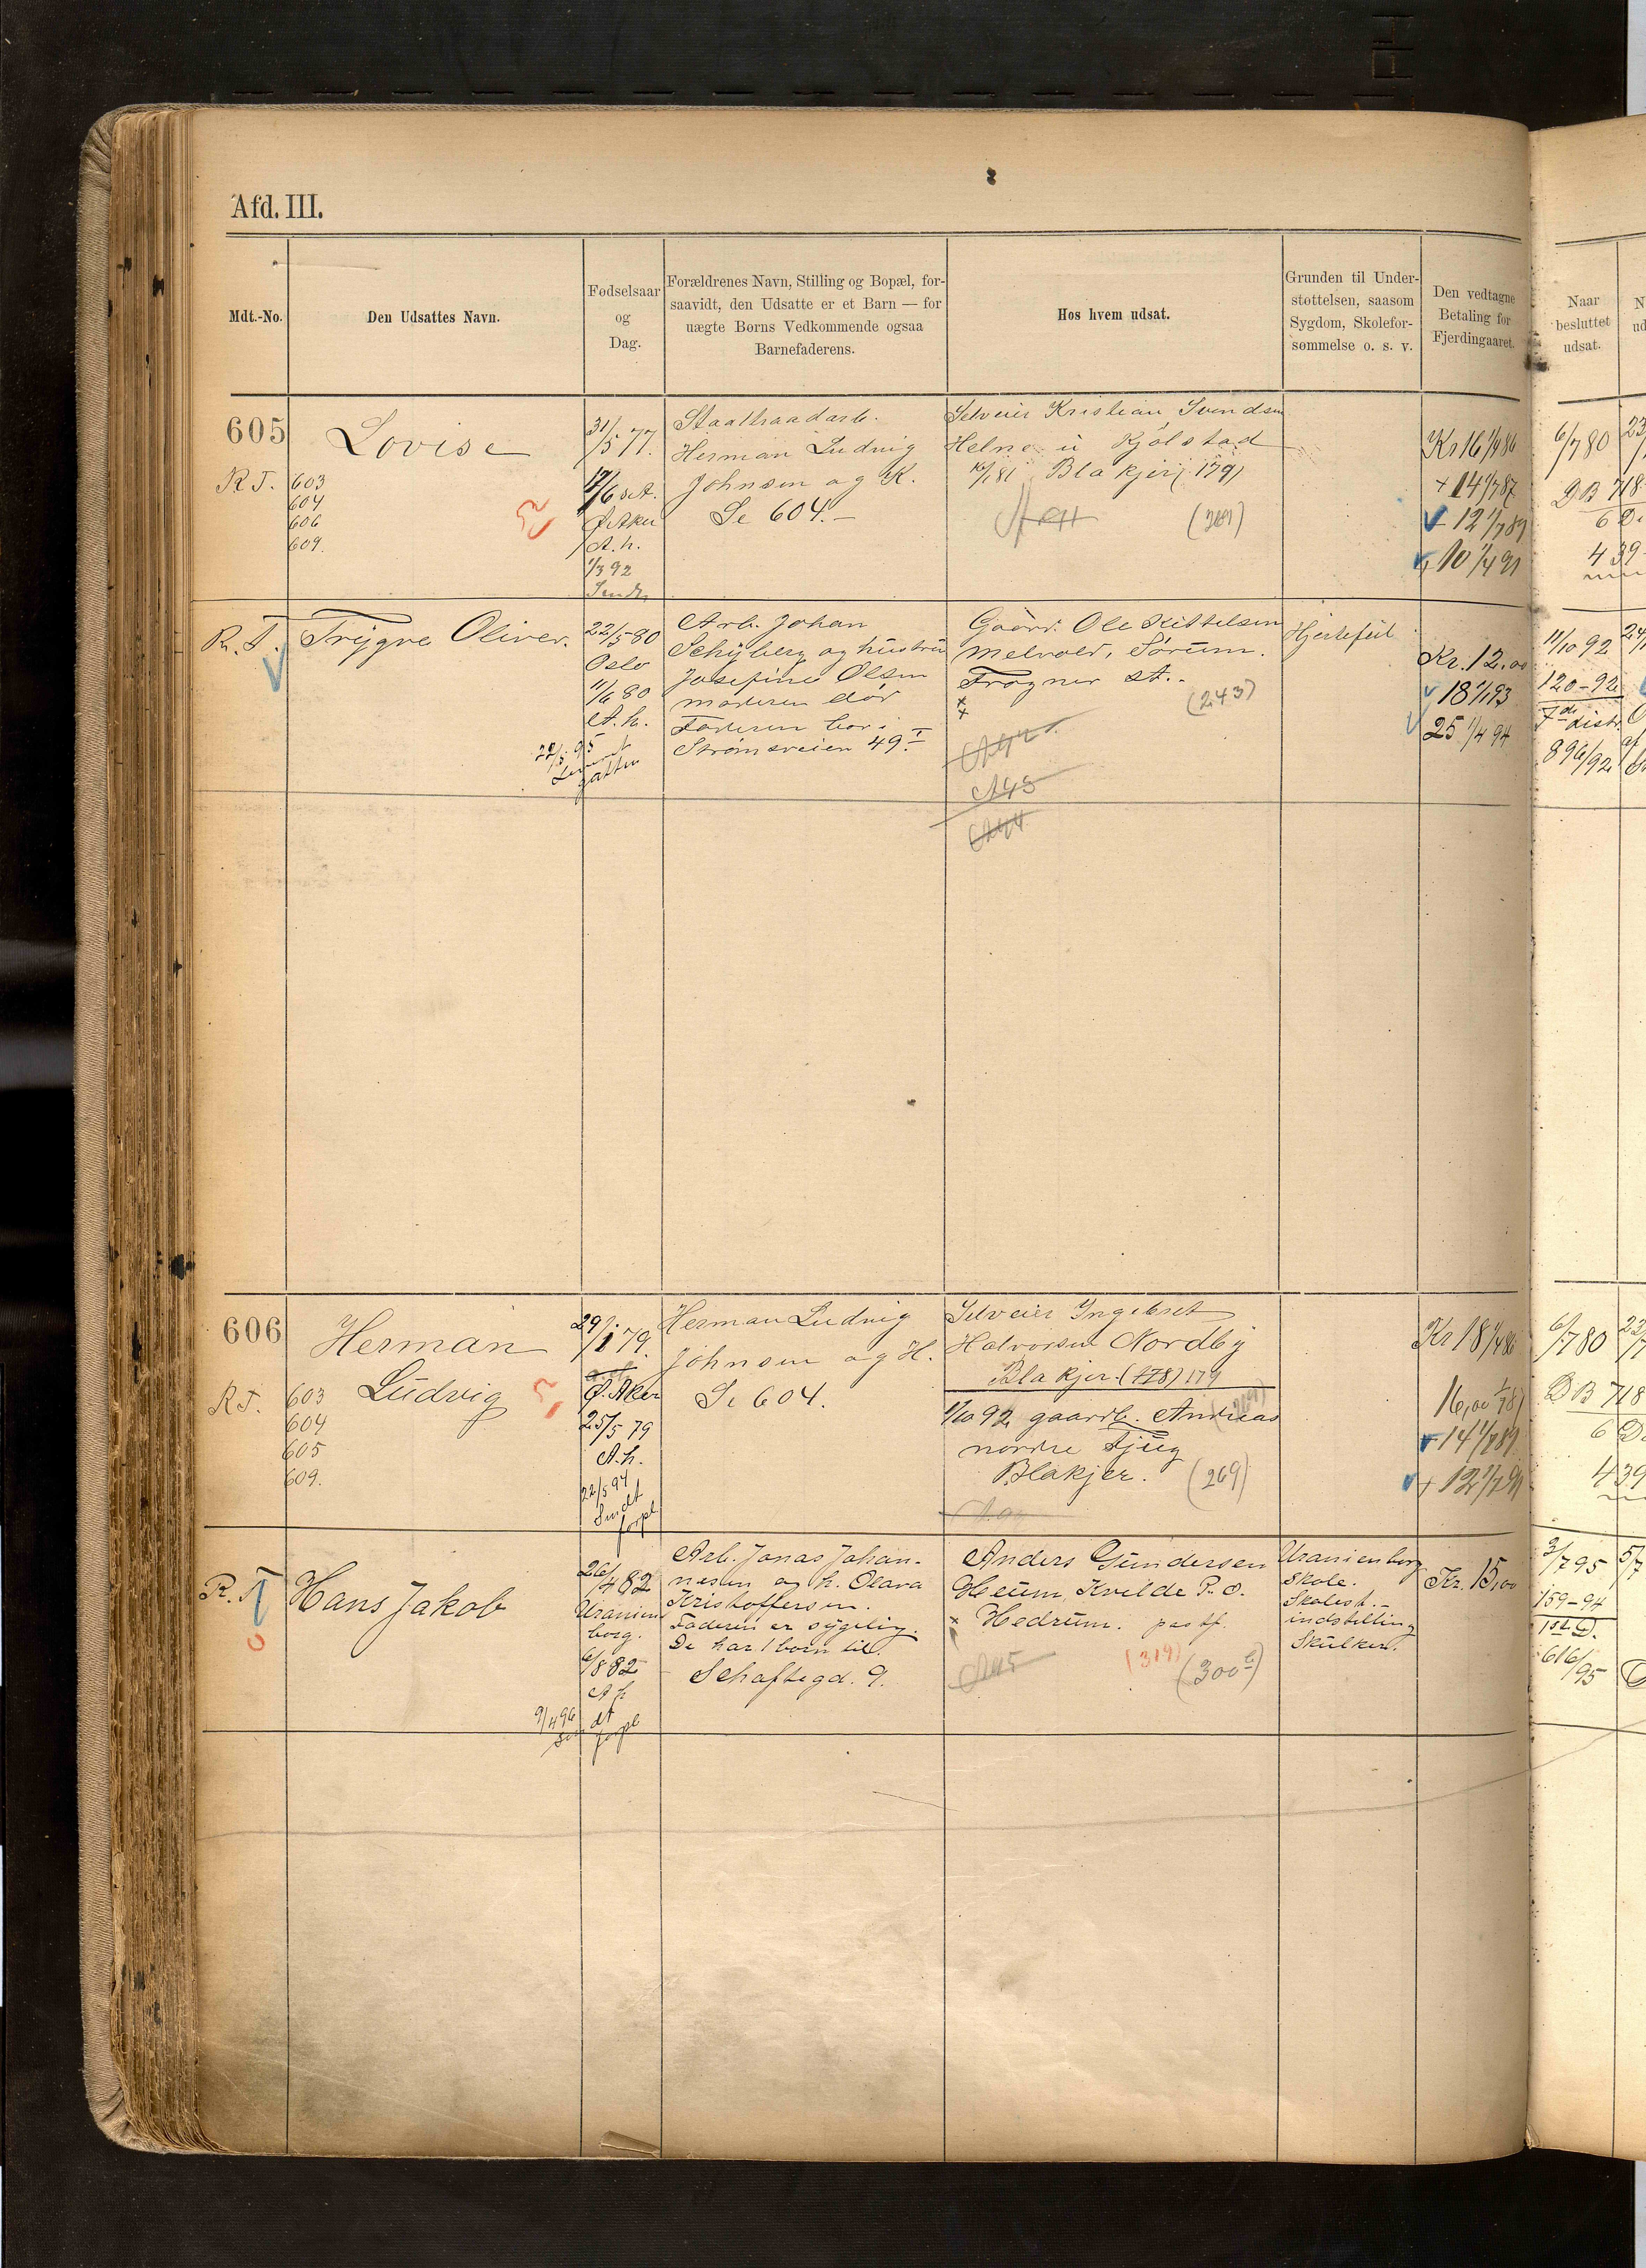 Afd. III.
Mdt.-No.
Den Udsattes Navn.
Fødselsaar
og
Dag.
Forældrenes Navn, Stilling og Bopæl, for-
saavidt, den Udsatte er et Barn — for
uægte Børns Vedkommende ogsaa
Barnefaderens.
Hos hvem udsat.
Grunden til Under-
støttelsen, saasom
Sygdom, Skolefor-
sømmelse o. s. v.
Den vedtagne
Betaling for
Fjerdingaaret.
Naar
besluttet
udsat.
605
R.T. 603
604
606
609.
Lovise
31/5 77.
Ø. Aker
A.h.
1/3 92
Herman Ludvig
Johnsen og K.
Se 604.-
Selveier Kristian Svendsen
Kjølstad
Blakjer (179)
(269)
Kr 16 1/4 86
+ 14 1/7 87
12 1/7 89
10 1/4 91
6/7 80
DB 718
6 D.
439
R. T.
Trygve Oliver.
22/5 80
Oslo
11/6 80
A.h.
Arb. Johan
Schyberg og hustru
Josefine Olsen
moderen død
Faderen bor i
Strømsveien 49 I
Gaardr. Ole Kittelsen
Melvold, Sørum.
Frogner st.-
(243)
A 95
A 94
Hjertefeil
Kr. 12,00
18 1/1 93
25 1/4 94
11/10 92
120-92
7de distr.
896/92
606
R.T. 603
604
605
609.
Herman
Ludvig
29/1 79.
Ø. Aker
25/5 79
A.h.
22/5 94
forpl
Herman Ludvig
Johnsen og H.
Se 604.
Selveier Ingebret
Halvorsen Nordby
Blakjer. (178) 179
1/10 92 gaardb. Andreas
nordre Fjug
Blakjer. (269)
Kr 18 1/4 86
16,00 1/7 87
14 1/7 89
+ 12 1/7 91
6/7 80
DB 718
6 D.
439
R. T.
Hans Jakob
26/4 82
Uranien
borg.
6/8 82
A h
9/4 96
forpl
Arb. Jonas Johan-
nesen og h. Olava
Kristoffersen.
Faderen er sygelig.
De har 1 barn til.
Schaftegd. 9.
Anders Gundersen
Heum, Kvelde P. O.
Hedrum.
A 95
(319)
(300)
Uranienborg
Skole.
Skolest.-
indstilling
Skulker.
Kr. 15,00
3/7 95
159-94
1st D.
616/95